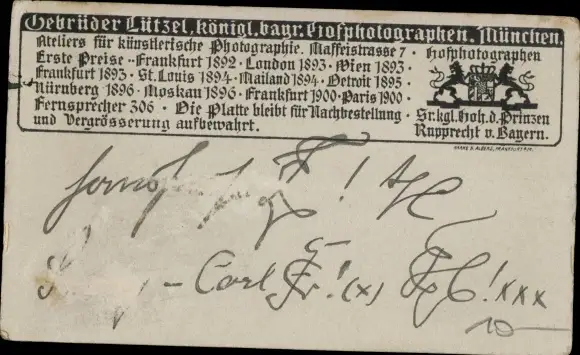 Gebrüder Lützel, königl. bayr. Hofphotographen. München.
Ateliers für künstlerische Photographie. Maffeistrasse 7 ·
Erste Preise · Frankfurt 1892 · London 1893 · Wien 1893 ·
Frankfurt 1893 · St. Louis 1894 · Mailand 1894 · Detroit 1895
Nürnberg 1896 · Moskau 1896 · Frankfurt 1900 · Paris 1900 ·
Fernsprecher 306 · Die Platte bleibt für Nachbestellung
und Vergrösserung aufbewahrt.
Hofphotographen
Sr. kgl. Hoh. d. Prinzen
Rupprecht v. Bayern.
– Carl Fr! (x) ! xxx